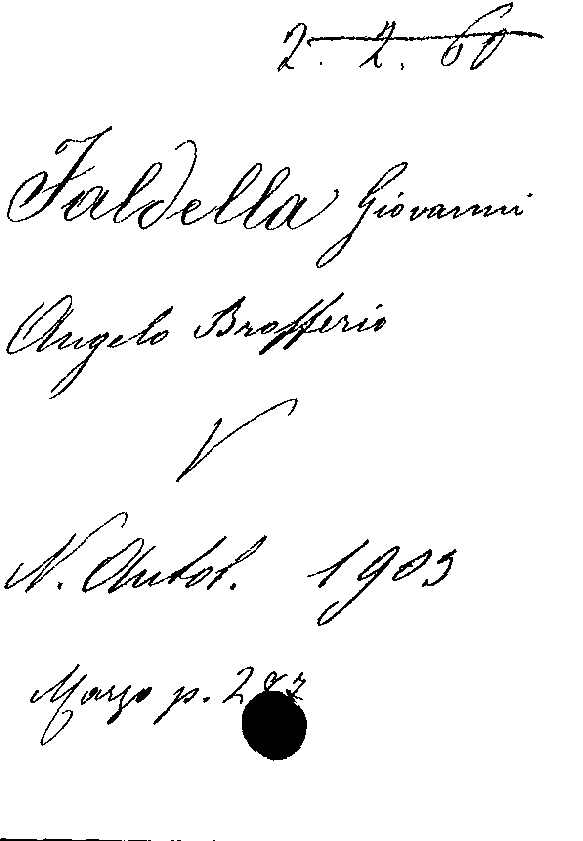 2. 2. 60
Faldella Giovanni
Angelo Brofferio
V
N. Antol. 1903
Marzo p.